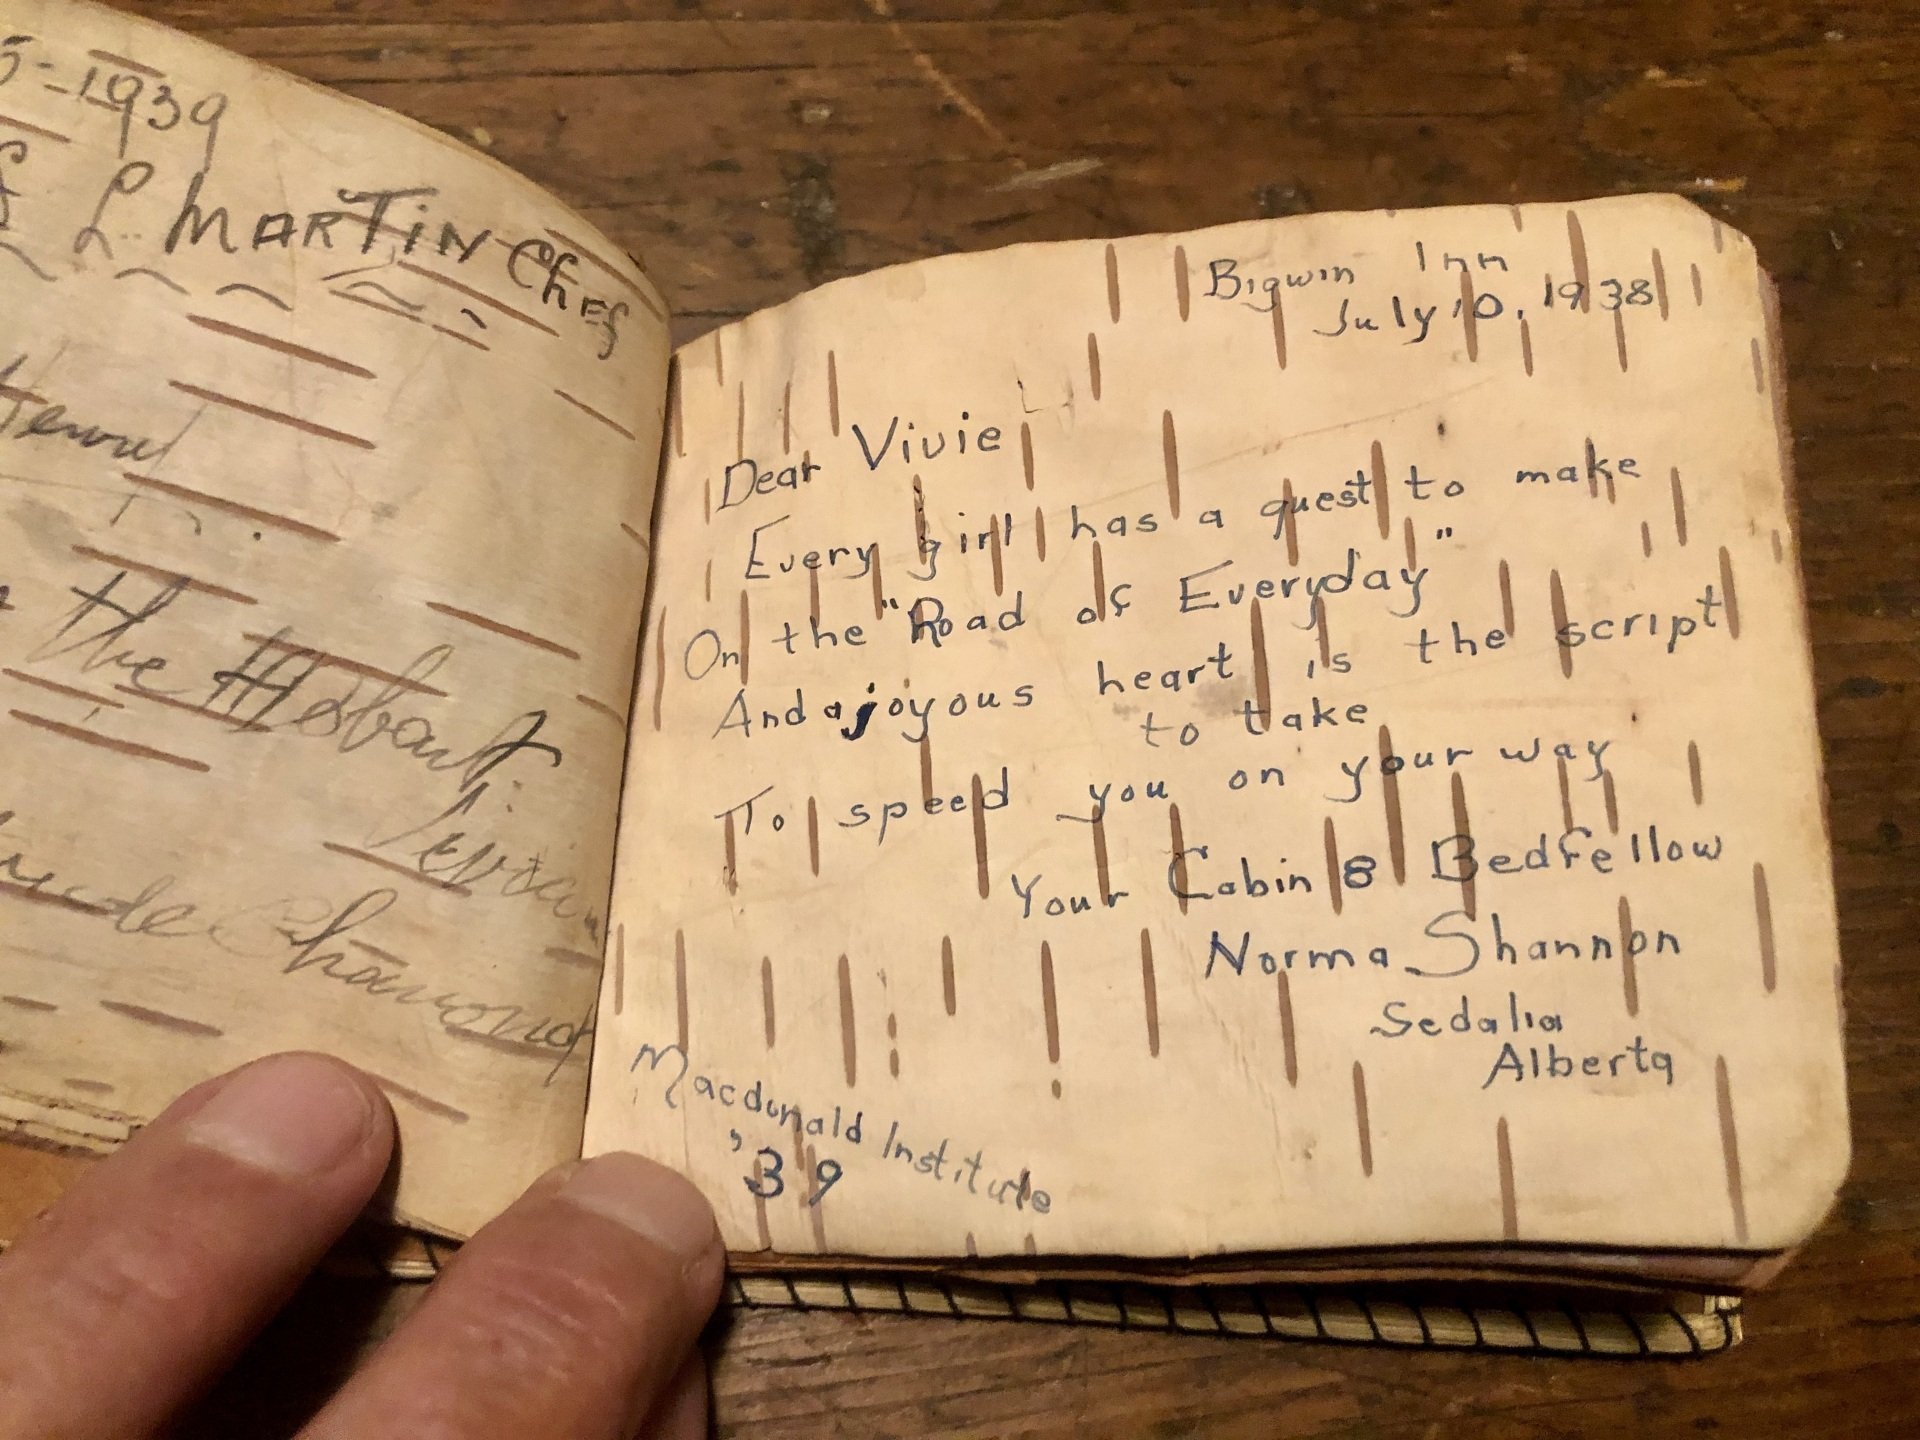 5-1939
L. MARTIN Chef
the Hobart
Bigwin Inn
July 10, 1938
Dear Vivie
Every girl has a quest to make
On the "Road of Everyday"
And a joyous heart is the script
to take
To speed you on your way
Your Cabin 8 Bedfellow
Norma Shannon
Sedalia
Alberta
Macdonald Institute
'39